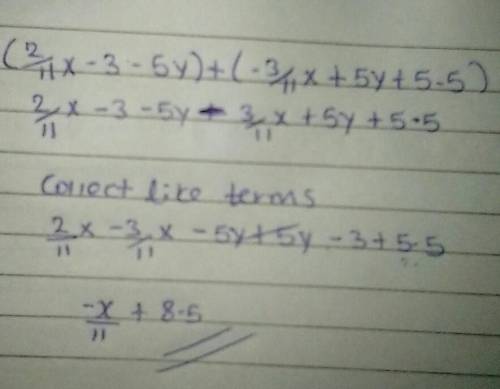 (2/11x - 3 - 5y) + (-3/11x + 5y + 5.5)
2/11x - 3 - 5y - 3/11x + 5y + 5.5
Collect like terms
2/11x - 3/11x - 5y + 5y - 3 + 5.5
-x/11 + 8.5